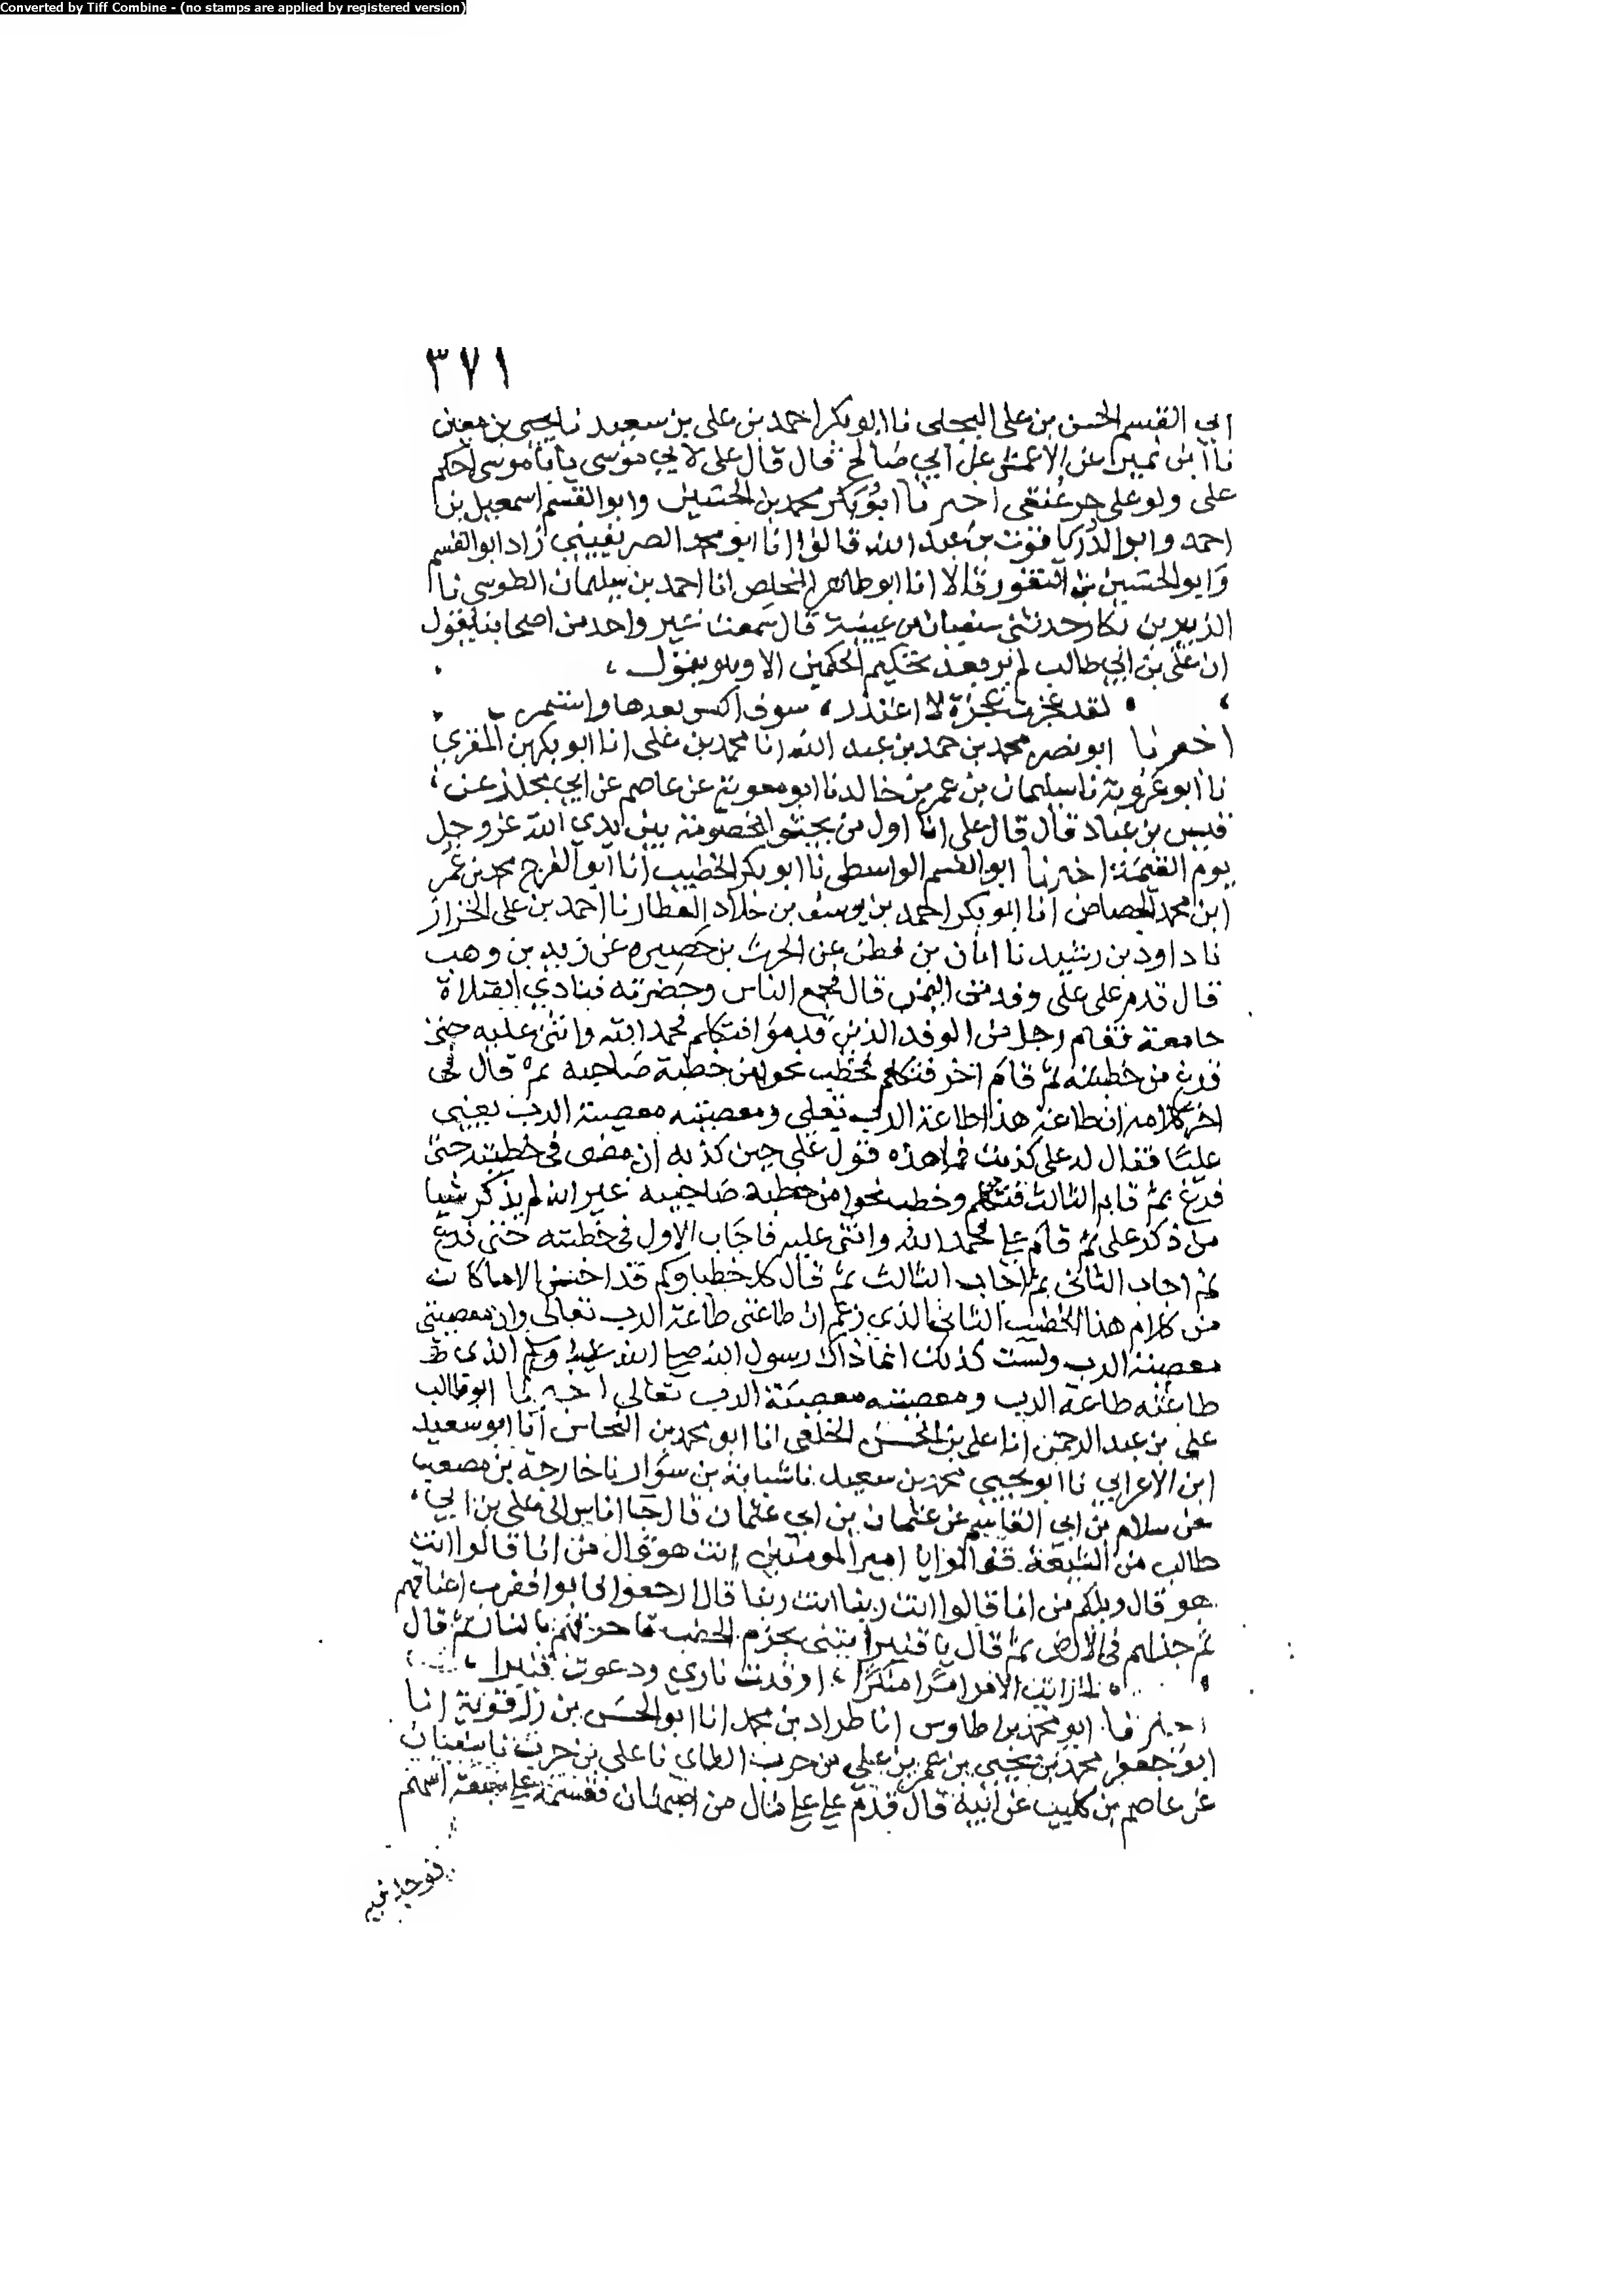 Converted by Tiff Combine - (no stamps are applied by registered version)
٣٧١
ابي القسم الحسن بن علي البجلي نا ابو بكر احمد بن علي بن سعيد نا يحيى بن معين
نا ابن نمير عن الاعمش عن ابي صالح قال قال علي لابي موسى يا با موسى احكم
على ولو على حز عنقي اخبرنا ابو بكر محمد بن الحسين وابو القسم اسمعيل بن
احمد وابو الدر يا قوت بن عبد الله قالوا انا ابو محمد الصريفيني زاد ابو القسم
وابو الحسين بن النقور قالا انا ابو طاهر المخلص انا احمد بن سليمان الطوسي نا
الزبير بن بكار حدثني سفيان بن عيينة قال سمعت غير واحد من اصحابنا يقول
ان علي بن ابي طالب لم بعد تحكيم الحكمين الا وهو يقول
لقد عجزت عجزة لا اعتذر سوف اكيس بعدها واستمر
اخبرنا ابو نصر محمد بن حمد بن عبد الله انا محمد بن علي انا ابو بكر بن المقري
نا ابو عروبة نا سليمان بن عمر بن خالد نا ابو معوية عن عاصم عن ابي مجلز عن
قيس بن عباد قال قال علي انا اول من يجثو الخصومة بين يدي الله عز وجل
يوم القيمة اخبرنا ابو القسم الواسطي نا ابو بكر الخطيب انا ابو الفرج محمد بن عمر
ابن محمد الجصاص انا ابو بكر احمد بن يوسف بن خلاد العطار نا احمد بن علي الخزاز
نا داود بن رشيد نا ابان بن قطن عن الحرث بن حصيره عن زيد بن وهب
قال قدم على علي وفد من اليمن قال فجمع الناس وحضرته فنادي الصلاة
جامعة فقام رجل من الوفد الذين قدموا فتكلم فحمد الله واثنى عليه حتى
فرغ من خطبته ثم قام اخر فتكلم فخطب نحوا من خطبة صاحبه ثم قال في
اخر كلامه ان طاعة هذا طاعة الرب تعلى ومعصيته معصية الرب يعني
عليا فقال له علي كذبت فما هذه قول علي حين كذبه ان مضى في خطبته حتى
فرغ ثم قام الثالث فتكلم وخطب نحوا من خطبة صاحبيه غير انه لم يذكر شيا
من ذكر علي ثم قام علي فحمد الله واثنى عليه فاجاب الاول في خطبته حتى فرغ
ثم اجاب الثاني ثم اجاب الثالث ثم قال كل خطباوكم قد احسن الا ما كان
من كلام هذا الخطيب الثاني الذي زعم ان طاعتي طاعة الرب تعالى وان معصيتي
معصية الرب ولست كذلك انما ذاك رسول الله صلى الله عليه وسلم الذي
طاعته طاعة الرب ومعصيته معصية الرب تعالى اخبرنا ابو طالب
علي بن عبد الرحمن انا علي بن الحسن الخلعي انا ابو محمد بن النحاس انا ابو سعيد
ابن الاعرابي نا ابو يحيى محمد بن سعيد نا شبابة بن سوار نا خارجة بن مصعب
عن سلام بن ابي القاسم عن عثمان بن ابي عثمان قال جا اناس الى علي بن ابي
طالب من الشيعة فقالوا يا امير المومنين انت هو قال من انا قالوا انت
هو قال ويلكم من انا قالوا انت ربنا انت ربنا قال ارجعوا فابوا فضرب اعناقهم
ثم خد لهم في الارض ثم قال يا قنبر ايتني بحزم الحطب فاحرقهم بالنار ثم قال
لما رايت الامر امرا منكرا اوقدت ناري ودعوت قنبرا
اخبرنا ابو محمد بن طاوس انا طراد بن محمد انا ابو الحسن بن زرقوية انا
ابو جعفر محمد بن يحيى بن عمر بن علي بن حرب الطاي نا علي بن حرب نا سفيان
عن عاصم بن كليب عن ابيه قال قدم على علي مال من اصبهان فقسمه على سبعة اسهم
فوجد فيه